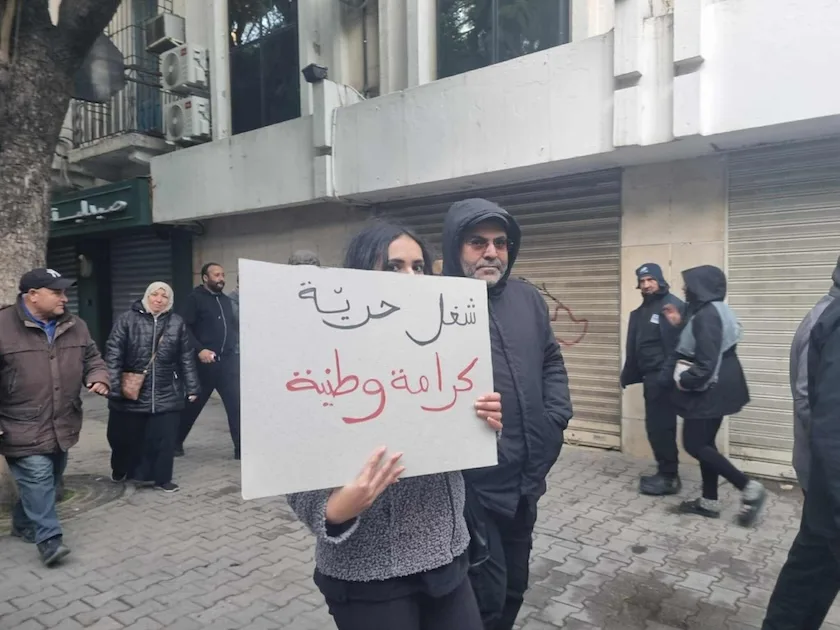 شغل حريّة
كرامة وطنية